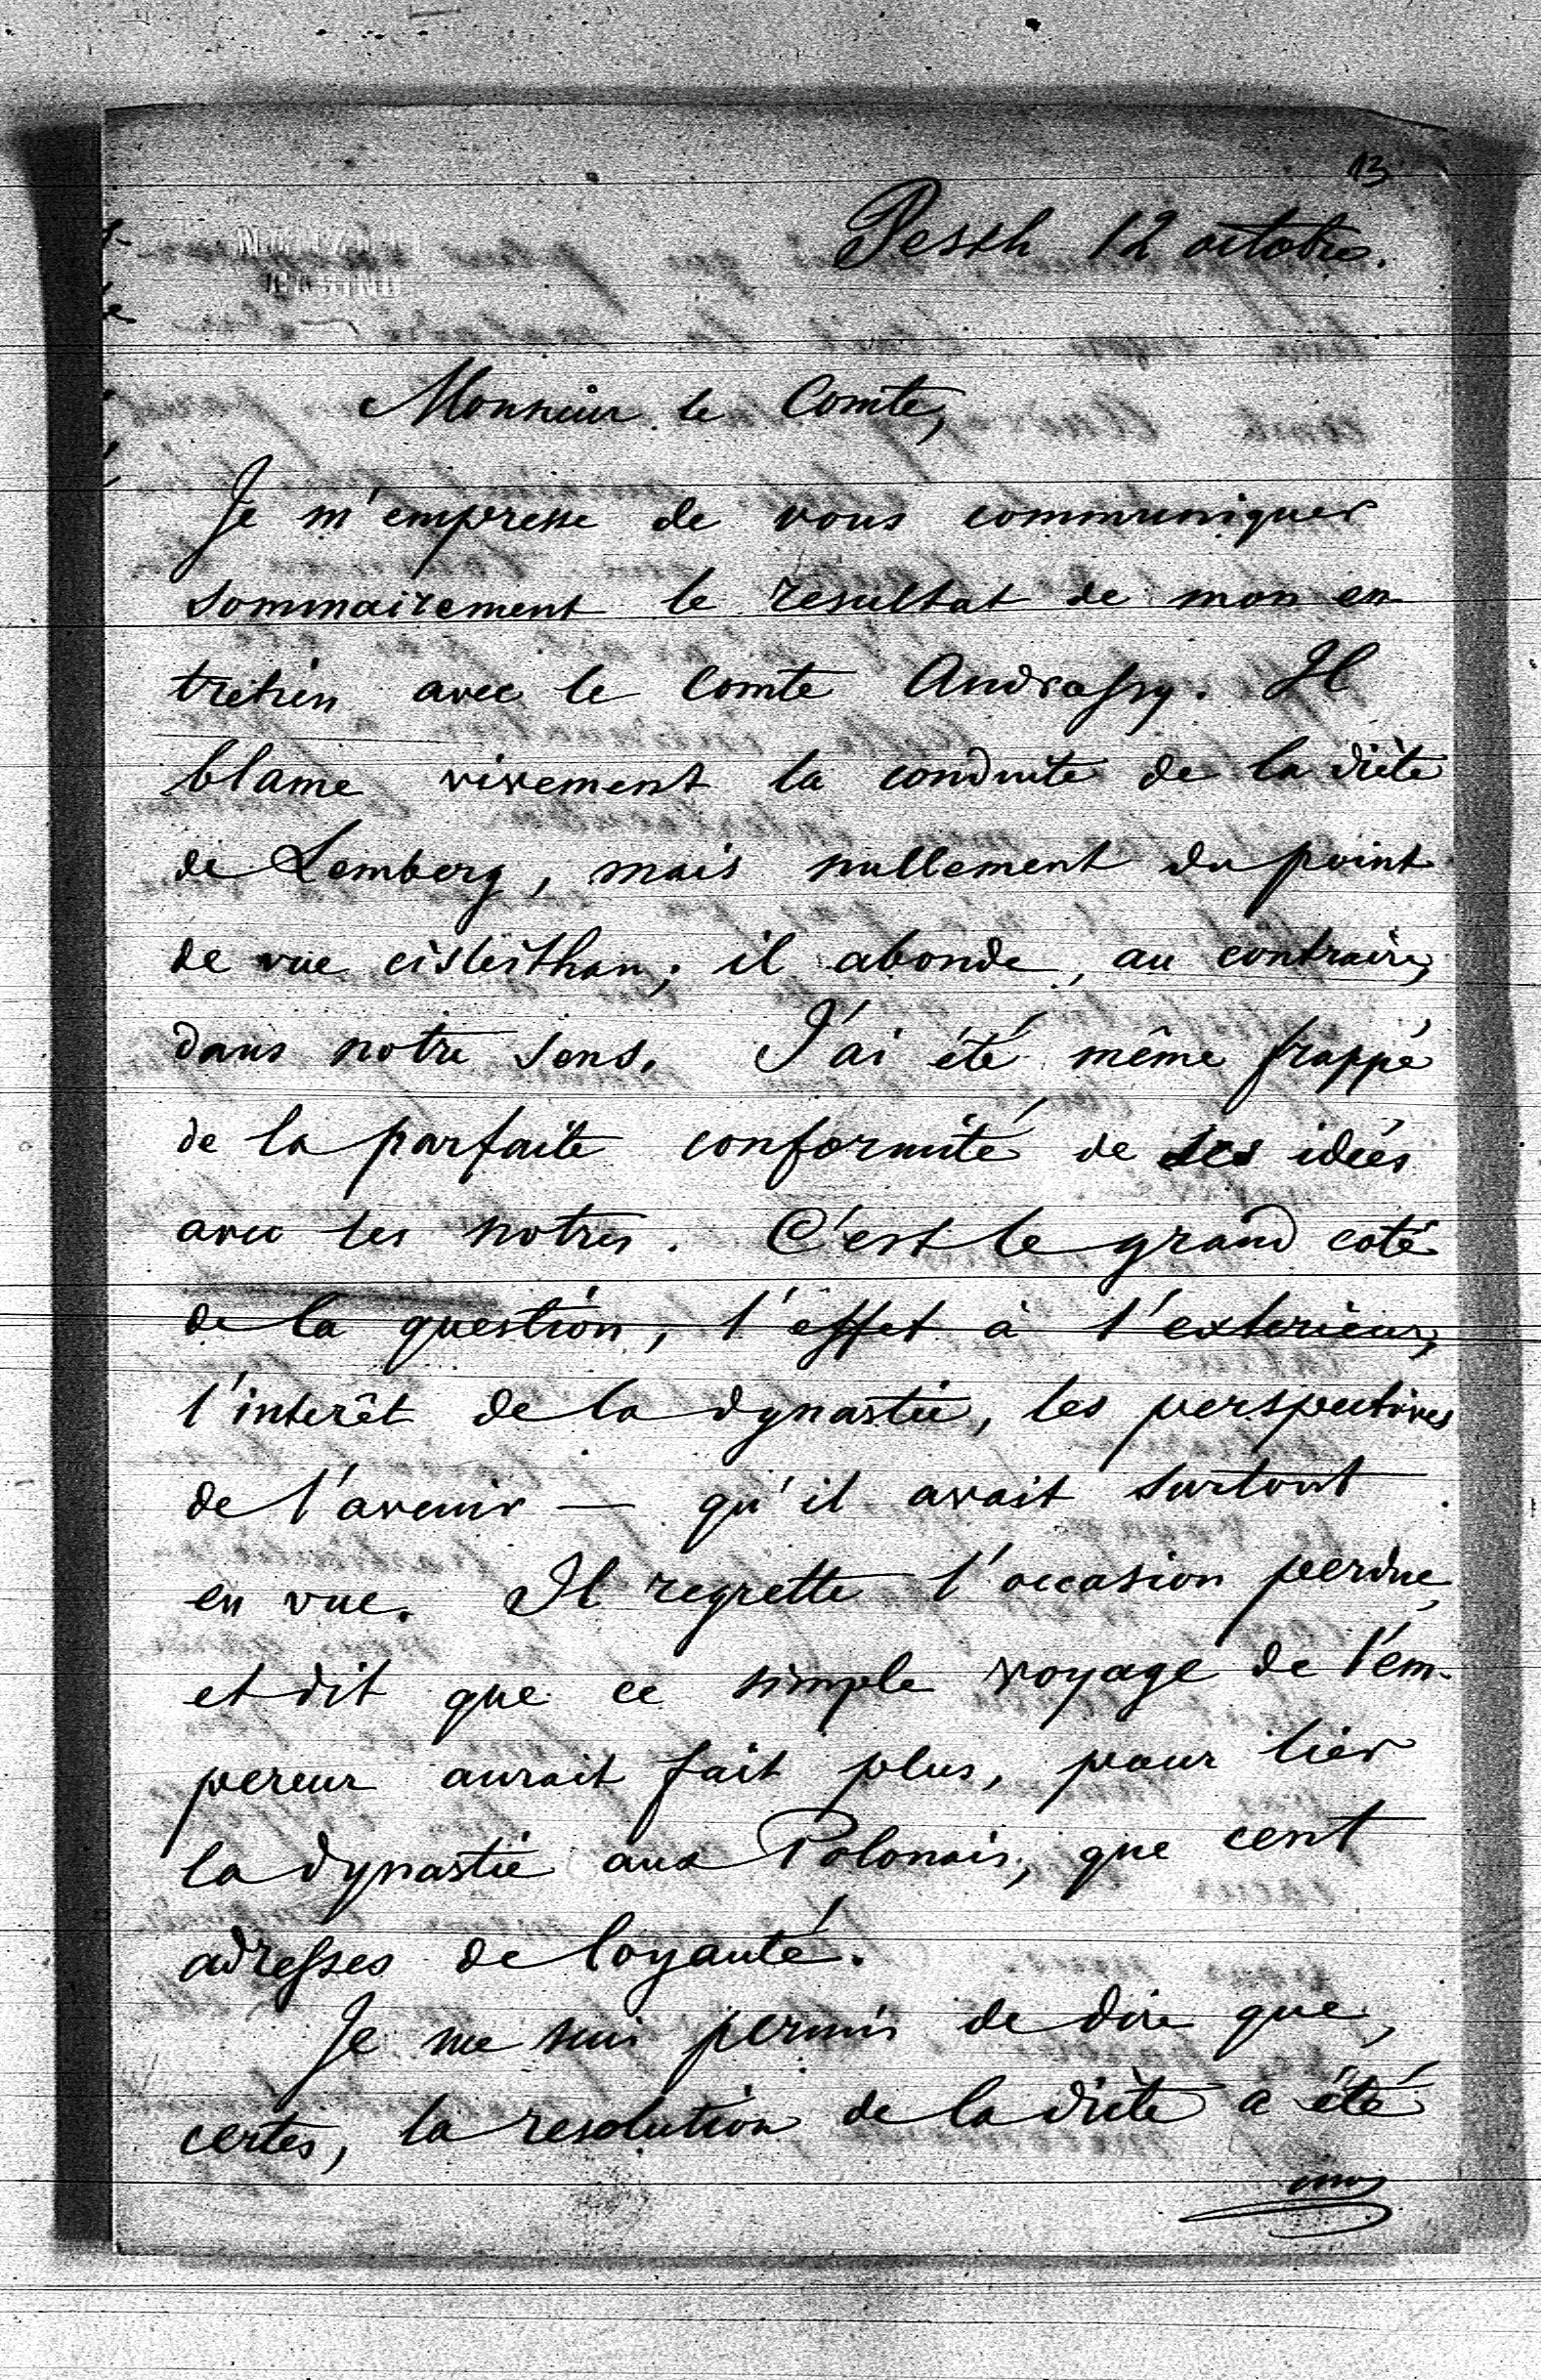 13
Pesth 12 octobre.
Monsieur le Comte,
Je m'empresse de vous communiquer
sommairement le résultat de mon en
tretien avec le Comte Andrassy. Il
blame vivement la conduite de la diète
de Lemberg, mais nullement du point
de vue cisleithan; il abonde, au contraire,
dans notre sens. J'ai été même frappé
de la parfaite conformité de ses idées
avec les notres. C'est le grand coté
de la question, l'effet à l'exterieur,
l'interêt de la dynastie, les perspectives
de l'avenir — qu'il avait surtout
en vue. Il regrette l'occasion perdue,
et dit que ce simple voyage de l'em-
pereur aurait fait plus, pour lier
la dynastie aux Polonais, que cent
adresses de loyauté.
Je me suis permis de dire que,
certes, la resolution de la diète a été